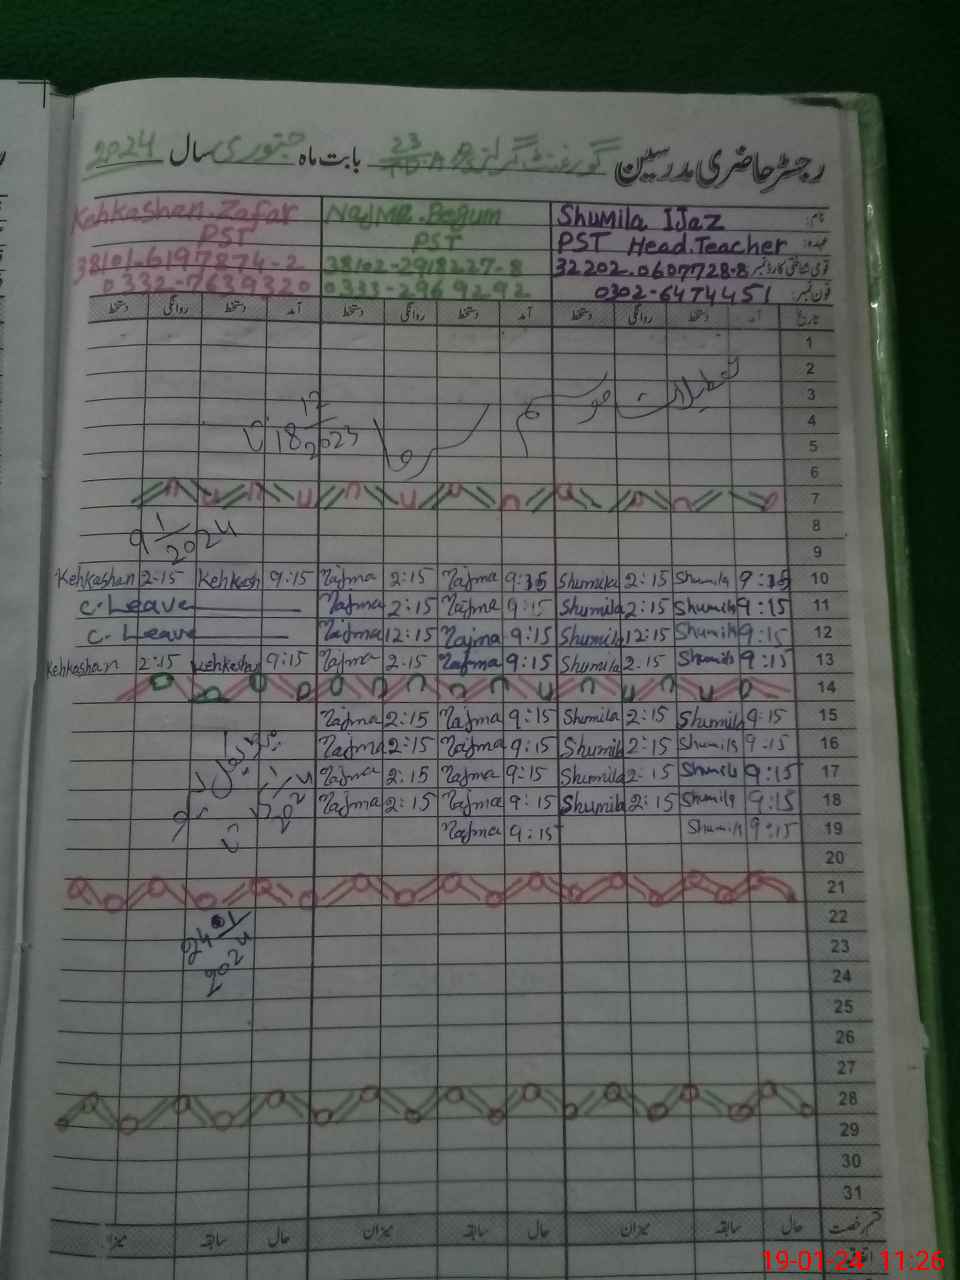 رجسٹر حاضری مدرسین گورنمنٹ گرلز 23 بابت ماہ جنوری سال 2024
نام: Shumila IJaz Najma.Begum Kahkashan.Zafar
عہدہ: PST Head.Teacher PST PST
قومی شناختی کارڈ نمبر 32202-0607728-8 38102-2918227-8 38101-6197874-2
فون نمبر: 0302-6474451 0333-2969292 0332-7639320
تاریخ آمد دستخط روانگی دستخط آمد دستخط روانگی دستخط آمد دستخط روانگی دستخط
1
2
تعطیلات موسم سرما
3
4
18 12 2023 تا
5
6
7
8
9 1 2024
9
10 9:15 Shumila 2:15 Shumila 9:15 Najma 2:15 Najma 9:15 Kehkash 2-15 Kehkashan
11 9:15 Shumila 2:15 Shumila 9:15 Najma 2:15 Najma C.Leave
12 9:15 Shumila 12:15 Shumila 9:15 Najma 12:15 Najma C.Leave
13 9:15 Shumila 2-15 Shumila 9:15 Najma 2-15 Najma 9:15 Kehkashan 2:15 Kehkashan
14
15 9:15 Shumila 2:15 Shumila 9:15 Najma 2:15 Najma
16 9:15 Shumila 2:15 Shumila 9:15 Najma 2:15 Najma
17 9:15 Shumila 2-15 Shumila 9:15 Najma 2:15 Najma
18 9:15 Shumila 2:15 Shumila 9:15 Najma 2:15 Najma
19 9:15 Shumila 9:15 Najma
20
21
22
24 1 2024
23
24
25
26
27
28
29
30
31
قسم رخصت حال سابقہ میزان حال سابقہ میزان حال سابقہ میزان
19-01-24 11:26